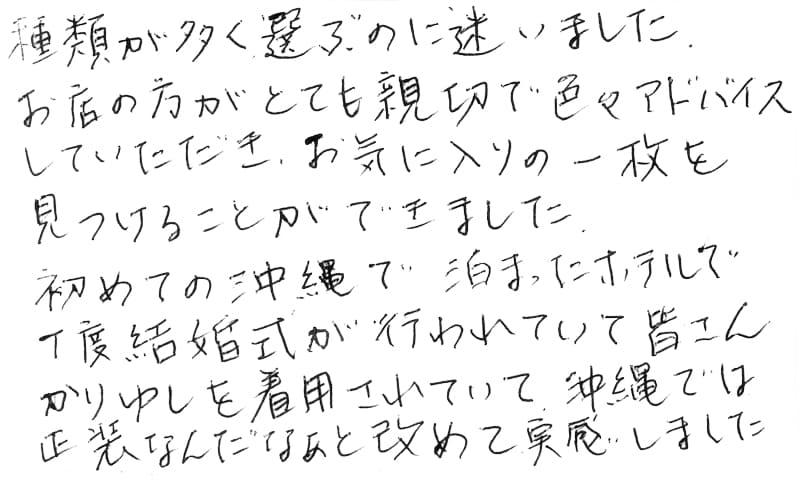 種類が多く選ぶのに迷いました.
お店の方がとても親切で色々アドバイス
していただき、お気に入りの一枚を
見つけることができました.
初めての沖縄で 泊まったホテルで
丁度結婚式が行われていて皆さん
かりゆしを着用されていて 沖縄では
正装なんだなぁと改めて実感しました